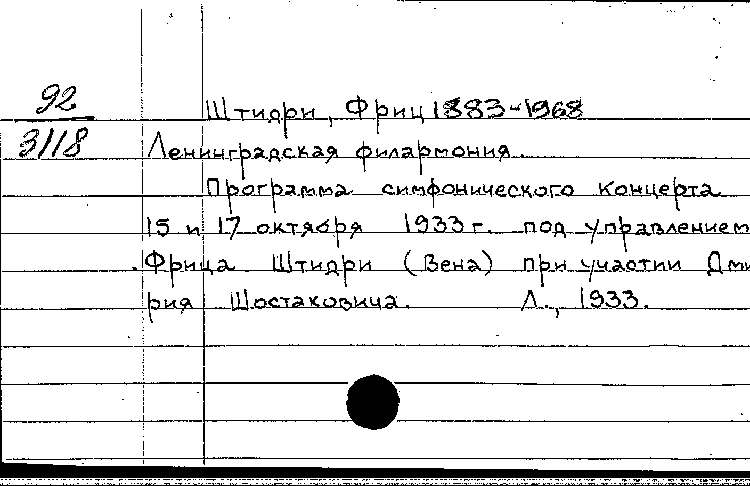 92
Штидри, Фриц 1883-1968
3118
Ленинградская филармония.
Программа симфонического концерта
15 и 17 октября 1933 г. под управлением
Фрица Штидри (Вена) при участии Дми
рия Шостаковича. Л., 1933.